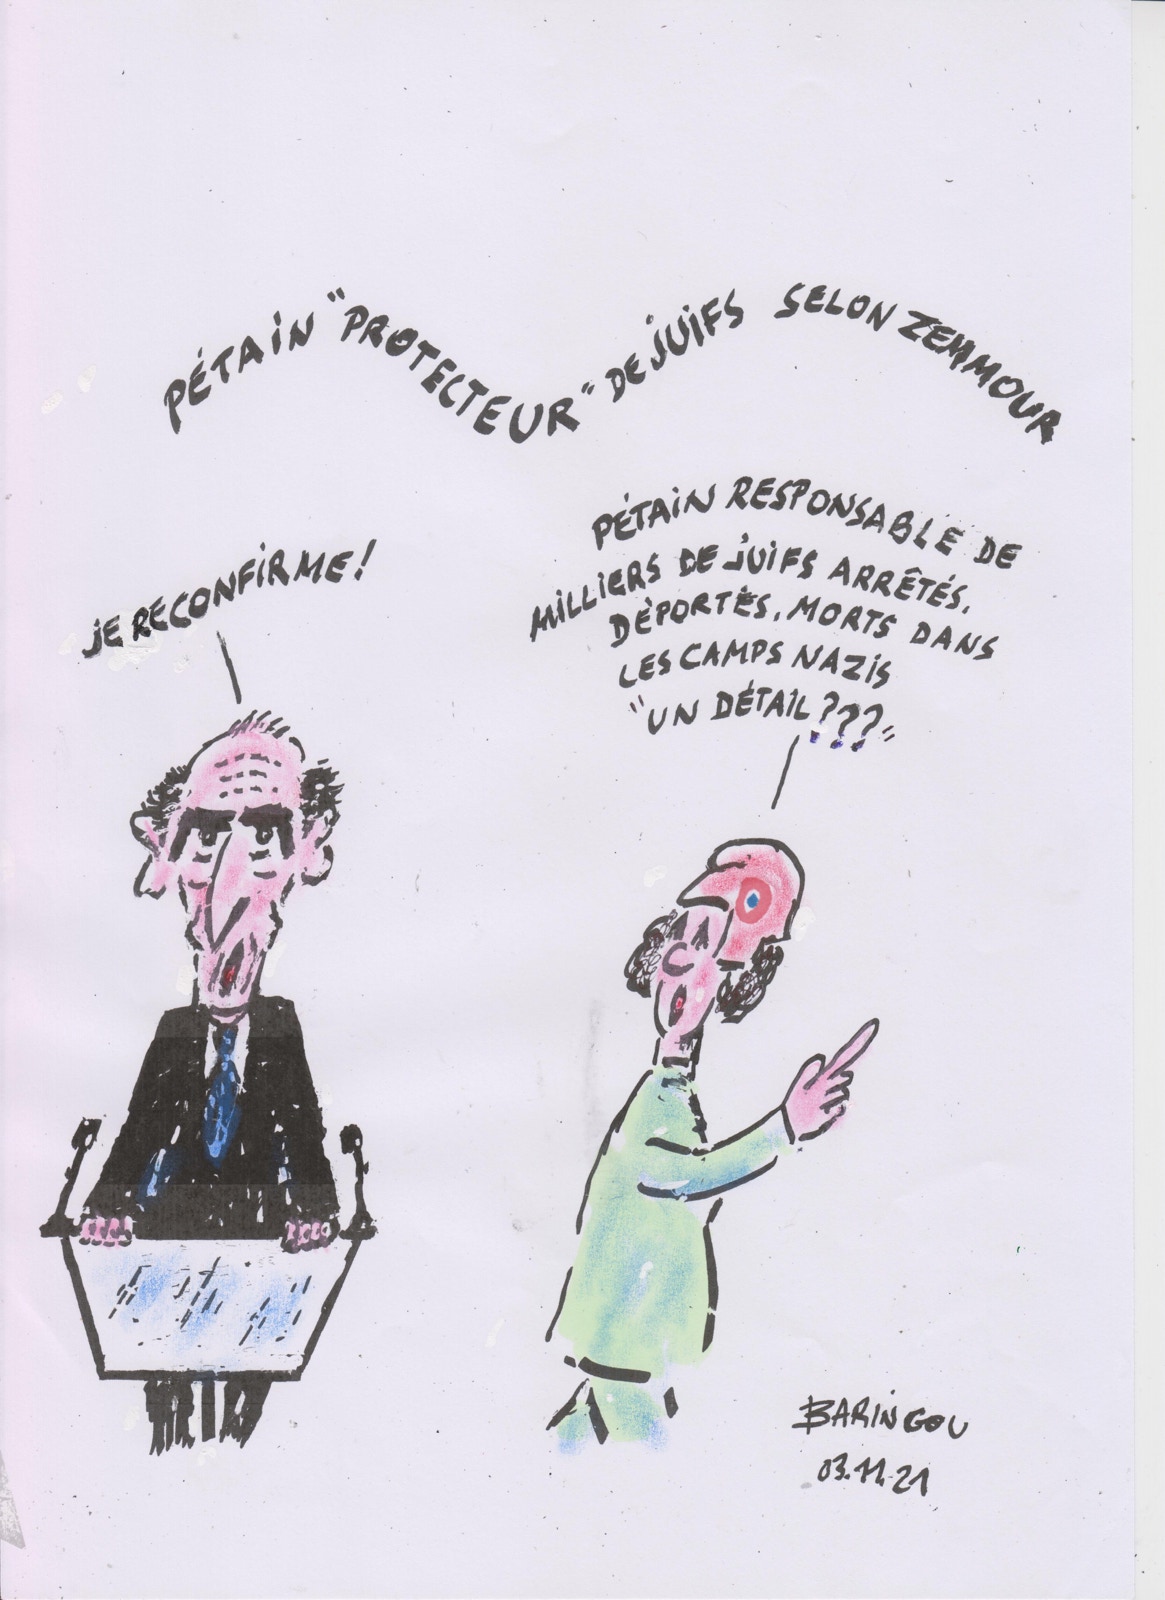 PÉTAIN "PROTECTEUR" DE JUIFS SELON ZEMMOUR
JE RECONFIRME!
PÉTAIN RESPONSABLE DE
MILLIERS DE JUIFS ARRÊTÉS,
DÉPORTÉS, MORTS DANS
LES CAMPS NAZIS
"UN DÉTAIL???"
BARINGOU
03.11.21